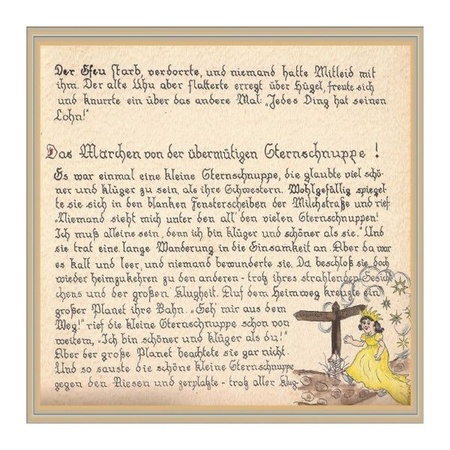 Der Efeu starb, verdorrte, und niemand hatte Mitleid mit
ihm. Der alte Uhu aber flatterte erregt über Hügel, freute sich
und knurrte ein über das andere Mal: "Jedes Ding hat seinen
Lohn!"
Das Märchen von der übermütigen Sternschnuppe !
Es war einmal eine kleine Sternschnuppe, die glaubte viel schö-
ner und klüger zu sein, als ihre Schwestern. Wohlgefällig spiegel-
te sie sich in den blanken Fensterscheiben der Milchstraße und rief:
"Niemand sieht mich unter den all' den vielen Sternschnuppen!
Ich muß alleine sein, denn ich bin klüger und schöner als sie." Und
sie trat eine lange Wanderung in die Einsamkeit an. Aber da war
es kalt und leer, und niemand bewunderte sie. Da beschloß sie, doch
wieder heimzukehren zu den anderen - trotz ihres strahlenden Gesich-
chens und der großen Klugheit. Auf dem Heimweg kreuzte ein
großer Planet ihre Bahn. "Geh' mir aus dem
Weg!" rief die kleine Sternschnuppe schon von
weitem, "Ich bin schöner und klüger als du!"
Aber der große Planet beachtete sie gar nicht.
Und so sauste die schöne kleine Sternschnuppe
gegen den Riesen und zerplatzte - trotz aller Klug-